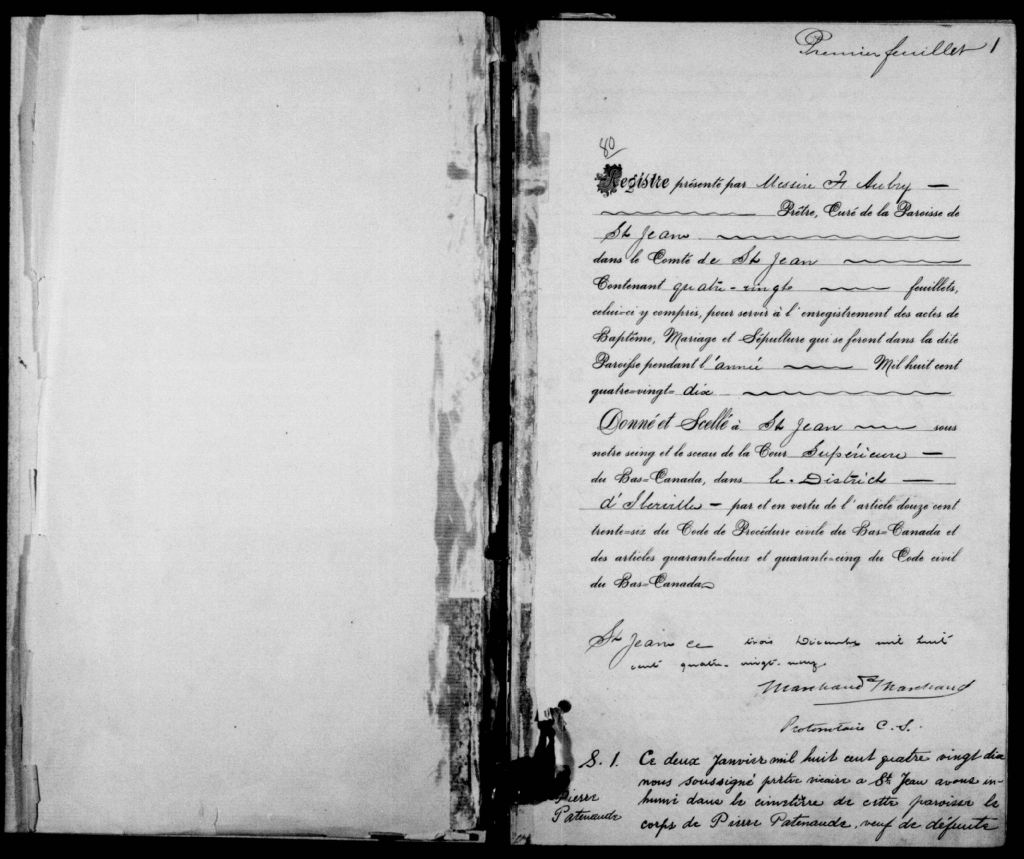 Premier feuillet 1
80
Registre présenté par Messire F Aubry
Prêtre, Curé de la Paroisse de
St Jean
dans le Comté de St Jean
Contenant quatre-vingts feuillets,
celui-ci y compris, pour servir à l'enregistrement des actes de
Baptême, Mariage et Sépulture qui se feront dans la dite
Paroisse pendant l'année Mil huit cent
quatre=vingt= dix
Donné et Scellé à St Jean sous
notre seing et le sceau de la Cour Supérieure
du Bas=Canada, dans le District
d'Iberville par et en vertu de l'article douze cent
trente=six du Code de Procédure civile du Bas=Canada et
des articles quarante=deux et quarante=cinq du Code civil
du Bas=Canada
St Jean ce trois Décembre mil huit
cent quatre-vingt-neuf.
Marchand & Marchand
Protonotaire C. S.
S. 1. Ce deux Janvier mil huit cent quatre vingt dix
nous soussigné prêtre vicaire a St Jean avons in-
humé dans le cimetière de cette paroisse le
Pierre
Patenaude
corps de Pierre Patenaude, veuf de défunte